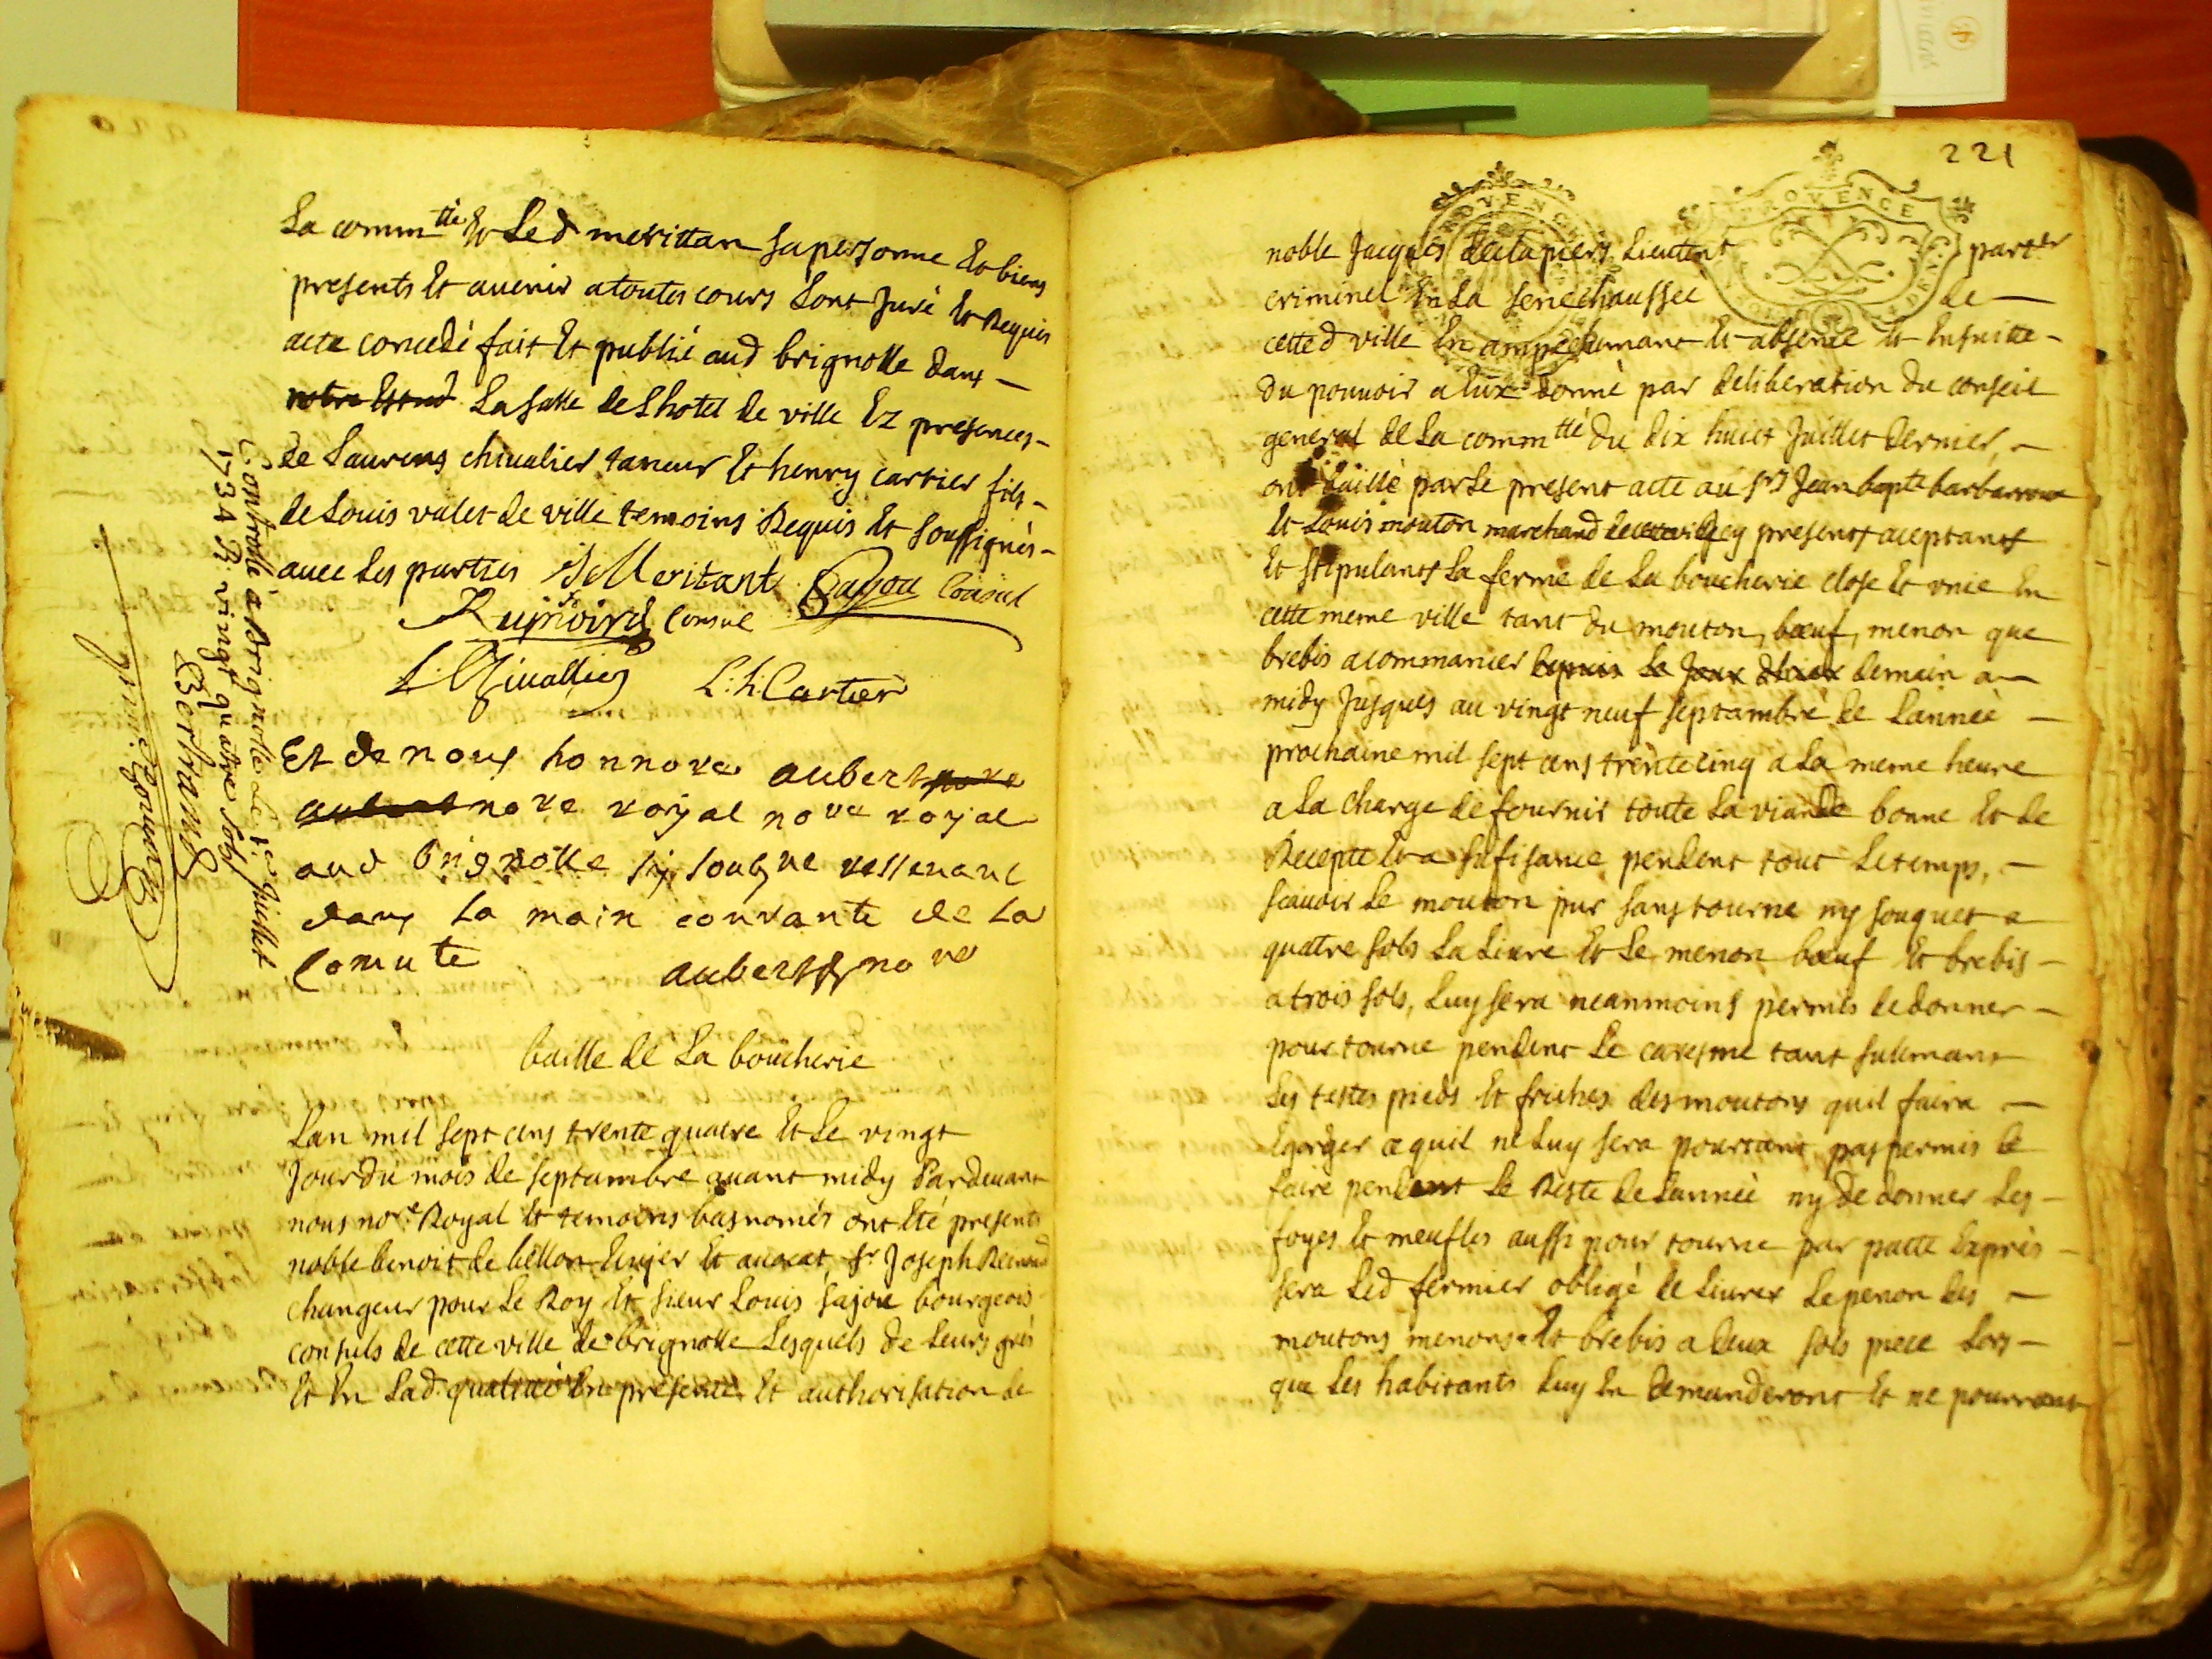 La comm.tté Et Led meritan sa personne Et biens
presents Et avenir a toutes cours Lont Juré Et Requis
acte concedé fait Et publié aud brignolle dans
notre Estud La salle de Lhotel de ville Ez presances
de Laurens chivalier taneur Et henry cartier fils
de Louis valet de ville temoins Requis Et soussignés
avec Les parties Meritant Sajou Consul
Consul
L. Chivallier L: h: Cartier
Et de nous honnoré aubert nore
aubert nore royal nore royal
aud brignolle
dans la main courante de la
Comuté aubert nore
Controllé à Brignolle Le Juillet
1734 R. vingt quatre sols
Bertrand
baille de La boucherie
Lan mil sept cens trente quatre Et Le vingt
Jour du mois de septambre avant midy Pardevant
nous nore Royal Et temoins bas només ont Eté presents
noble benoit de bellon Et avocat, sr Joseph
changeur pour Le Roy Et sieur Louis sajou bourgeois
consuls de cette ville de brignolle Lesquels de Leurs grés
Et En Lad. qualité En presence Et authorisation de
221
PROVENCE
PROVENCE
noble Jacques declapiers Lieutent parter
criminel En La senechaussee de
cetted ville En ampechemant Et absence Et Ensuitte
du pouvoir a Eux donné par deliberation du conseil
general de La comm.tté du dix huict Juillet dernier,
ont baillé par Le present acte au srs Jean bapte barbarroux
Et Louis mouton marchand de cette ville Icy presents aceptants
Et stipulants La ferme de La boucherie close Et unie En
cette meme ville tant du mouton, bœuf, menon que
brebis a commancer depuis Le Jour demain a
midy Jusques au vingt neuf septambre de Lannée
prochaine mil sept cens trente cinq a La meme heure
a La charge de fournir toute La viande bonne Et de
Recepte Et a sufisance pendent tout Le temps,
scavoir Le mouton pur sans tourne ny souquet a
quatre sols La Livre Et Le menon bœuf Et brebis
a trois sols, Luy sera neanmoins permis de donner
pour tourne pendent Le caresme tant sulemant
Les testes pieds Et friches des moutons quil faira
Egorger ce quil ne Luy sera pourtant pas permis de
faire pendent Le Reste de Lannée ny de donner Les
foyes Et meufles aussi pour tourne par pacte Exprés
sera Led fermier obligé de Livrer Le penon des
moutons menons Et brebis a deux sols piece Lors
que Les habitants Luy En demanderont Et ne pourront